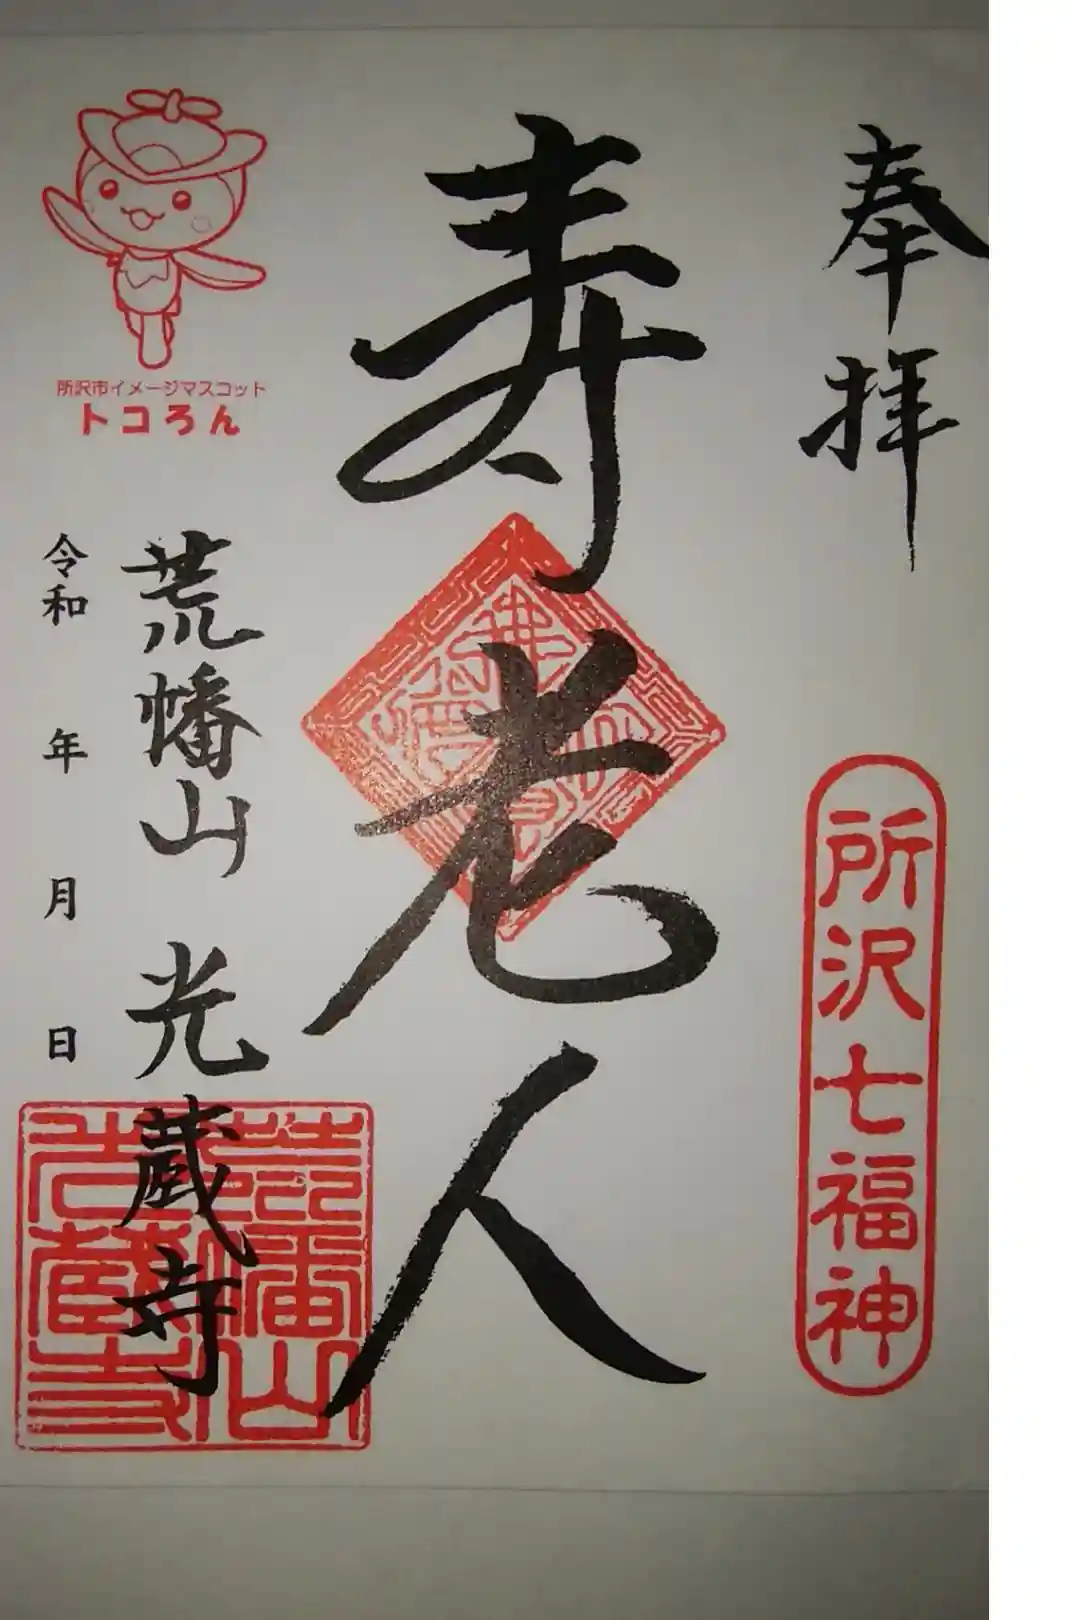 奉拝
所沢七福神
寿老人
所沢市イメージマスコット
トコろん
荒幡山 光蔵寺
荒幡山
光蔵寺
令和 年 月 日